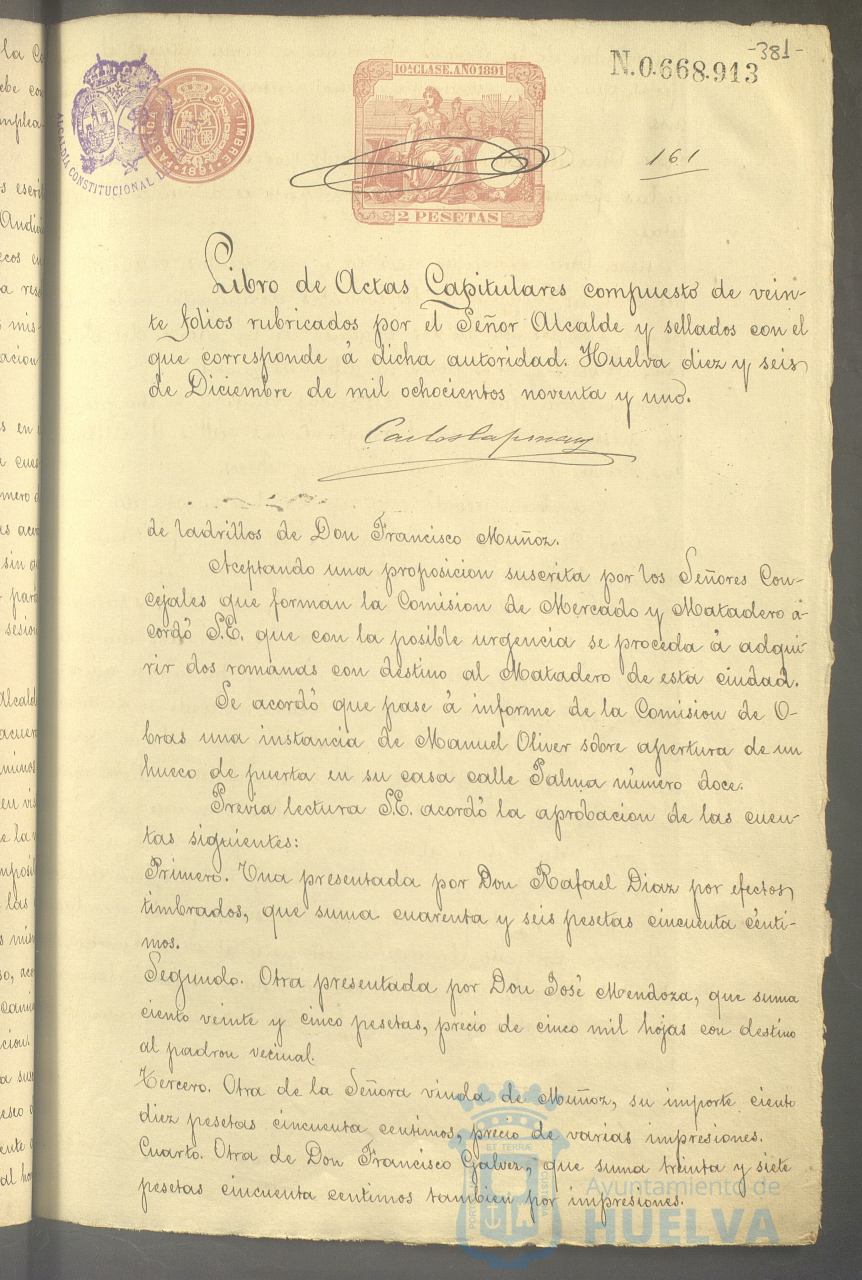 -381-
10ª CLASE. AÑO 1891
N.0.668.913
161
FABRICA DEL TIMBRE
1891
ALCALDÍA CONSTITUCIONAL D
2 PESETAS
Libro de Actas Capitulares compuesto de vein-
te folios rubricados por el Señor Alcalde y sellados con el
que corresponde á dicha autoridad. Huelva diez y seis
de Diciembre de mil ochocientos noventa y uno.
Carlos
de ladrillos de Don Francisco Muñoz.
Aceptando una proposicion suscrita por los Señores Con-
cejales que forman la Comision de Mercado y Matadero a-
cordó S.E. que con la posible urgencia se proceda á adqui-
rir dos romanas con destino al Matadero de esta ciudad.
Se acordó que pase á informe de la Comision de O-
bras una instancia de Manuel Oliver sobre apertura de un
hueco de puerta en su casa calle Palma número doce.
Prévia lectura S.E. acordó la aprobacion de las cuen-
tas siguientes:
Primero. Una presentada por Don Rafael Diaz por efectos
timbrados, que suma cuarenta y seis pesetas cincuenta cénti-
mos.
Segundo. Otra presentada por Don José Mendoza, que suma
ciento veinte y cinco pesetas, precio de cinco mil hojas con destino
al padron vecinal.
Tercero. Otra de la Señora viuda de Muñoz, su importe ciento
diez pesetas cincuenta centimos, precio de varias impresiones.
Cuarto. Otra de Don Francisco Galvez, que suma treinta y siete
pesetas cincuenta centimos tambien por impresiones.
Ayuntamiento de
HUELVA